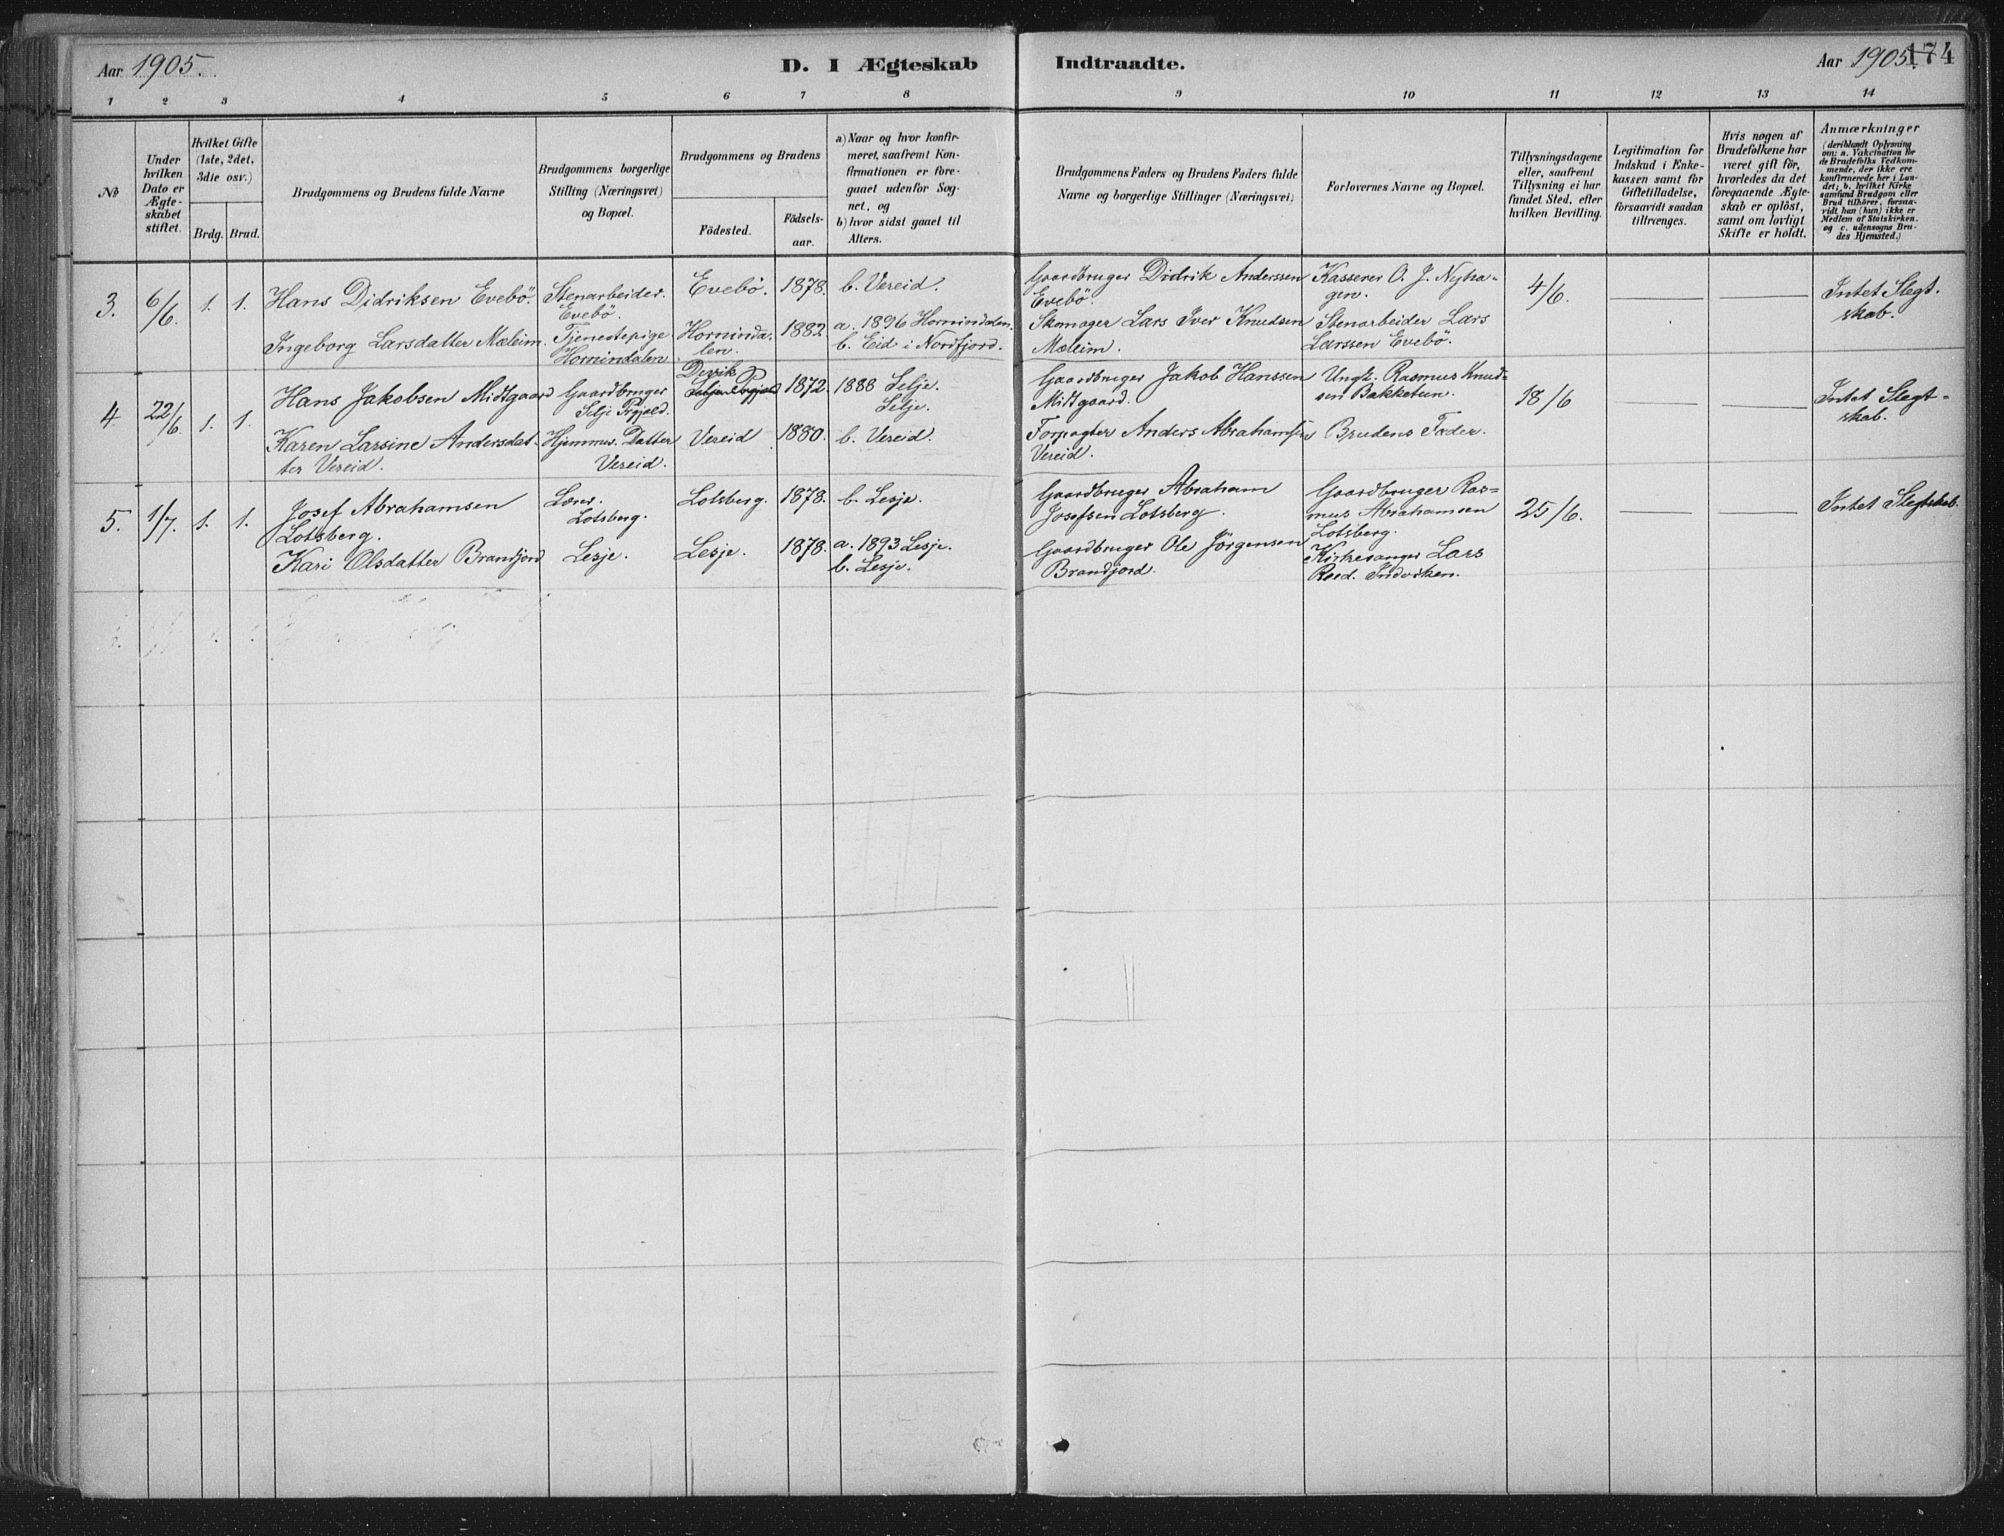 Aar 1905. D. I Ægteskab Indtraadte. Aar 1905. 174
1 2 3 4 5 6 7 8 9 10 11 12 13 14
No
Under hvilken Dato er Ægteskabet stiftet.
Hvilket Gifte (1ste, 2det, 3die osv.)
Brdg. Brud.
Brudgommens og Brudens fulde Navne
Brudgommens borgerlige Stilling (Næringsvei) og Bopæl.
Brudgommens og Brudens
Födested.
Födselsaar.
a) Naar og hvor konfirmeret, saafremt Konfirmationen er foregaaet udenfor Sognet, og
b) hvor sidst gaaet til Alters.
Brudgommens Faders og Brudens Faders fulde Navne og borgerlige Stillinger (Næringsvei)
Forlovernes Navne og Bopæl.
Tillysningsdagene eller, saafremt Tillysning ei har fundet Sted, efter hvilken Bevilling.
Legitimation for Indskud i Enkekassen samt for Giftetilladelse, forsaavidt saadan tiltrænges.
Hvis nogen af Brudefolkene har været gift før, hvorledes da det foregaaende Ægteskab er oplöst, samt om lovligt Skifte er holdt.
Anmærkninger
(deriblandt Oplysning om: a. Vakcination for de Brudefolks Vedkommende, der ikke ere konfirmerede her i Landet; b. hvilket Kirkesamfund Brudgom eller Brud tilhörer, forsaavidt han (hun) ikke er Medlem af Statskirken. og c. udensogns Brudes Hjemsted.)
3. 6/6. 1. 1. Hans Didriksen Evebö. Stenarbeider. Evebö. Evebö. 1878. b. Vereid. Gaardbruger Didrik Anderssen Evebö. Kasserer O. J. Nyhagen. 4/6. Intet Slegtskab.
Ingeborg Larsdatter Mæleim. Tjenestepige Hornindalen Hornindalen. 1882 a. 1896 Hornindalen. b. Eid i Nordfjord. Skomager Lars Iver Knudsen Mæleim. Stenarbeider Lars Larssen Evebö.
4 22/6 1. 1. Hans Jakobsen Midtgaard Gaardbruger Selje Prgjeld. 1872. 1888 Selje. Selje. Gaardbruger Jakob Hanssen Midtgaard. Ungk. Rasmus Knudsen Bakketun. 18/6 Intet Slegtskab.
Karen Larsine Andersdatter Vereid. Hjemmev. Datter Vereid. Vereid 1880. b. Vereid. Forpagter Anders Abrahamsen Vereid. Brudens Fader.
5. 1/7. 1. 1. Josef Abrahamsen Lotsberg. Lærer. Lotsberg. Lotsberg. 1878. b. Lesje. Gaardbruger Abraham Josefsen Lotsberg. Gaardbruger Rasmus Abrahamsen Lotsberg. 25/6. Intet Slegtskab.
Kari Olsdatter Brandjord Lesje. Lesje. 1878. a. 1893 Lesje. b. Lesje. Gaardbruger Ole Jörgensen Brandjord. Kirkesanger Lars Reed. Indviken.